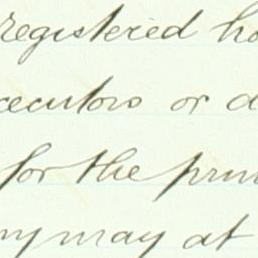 registered ho
xecutors or d
for the prin
ny may at